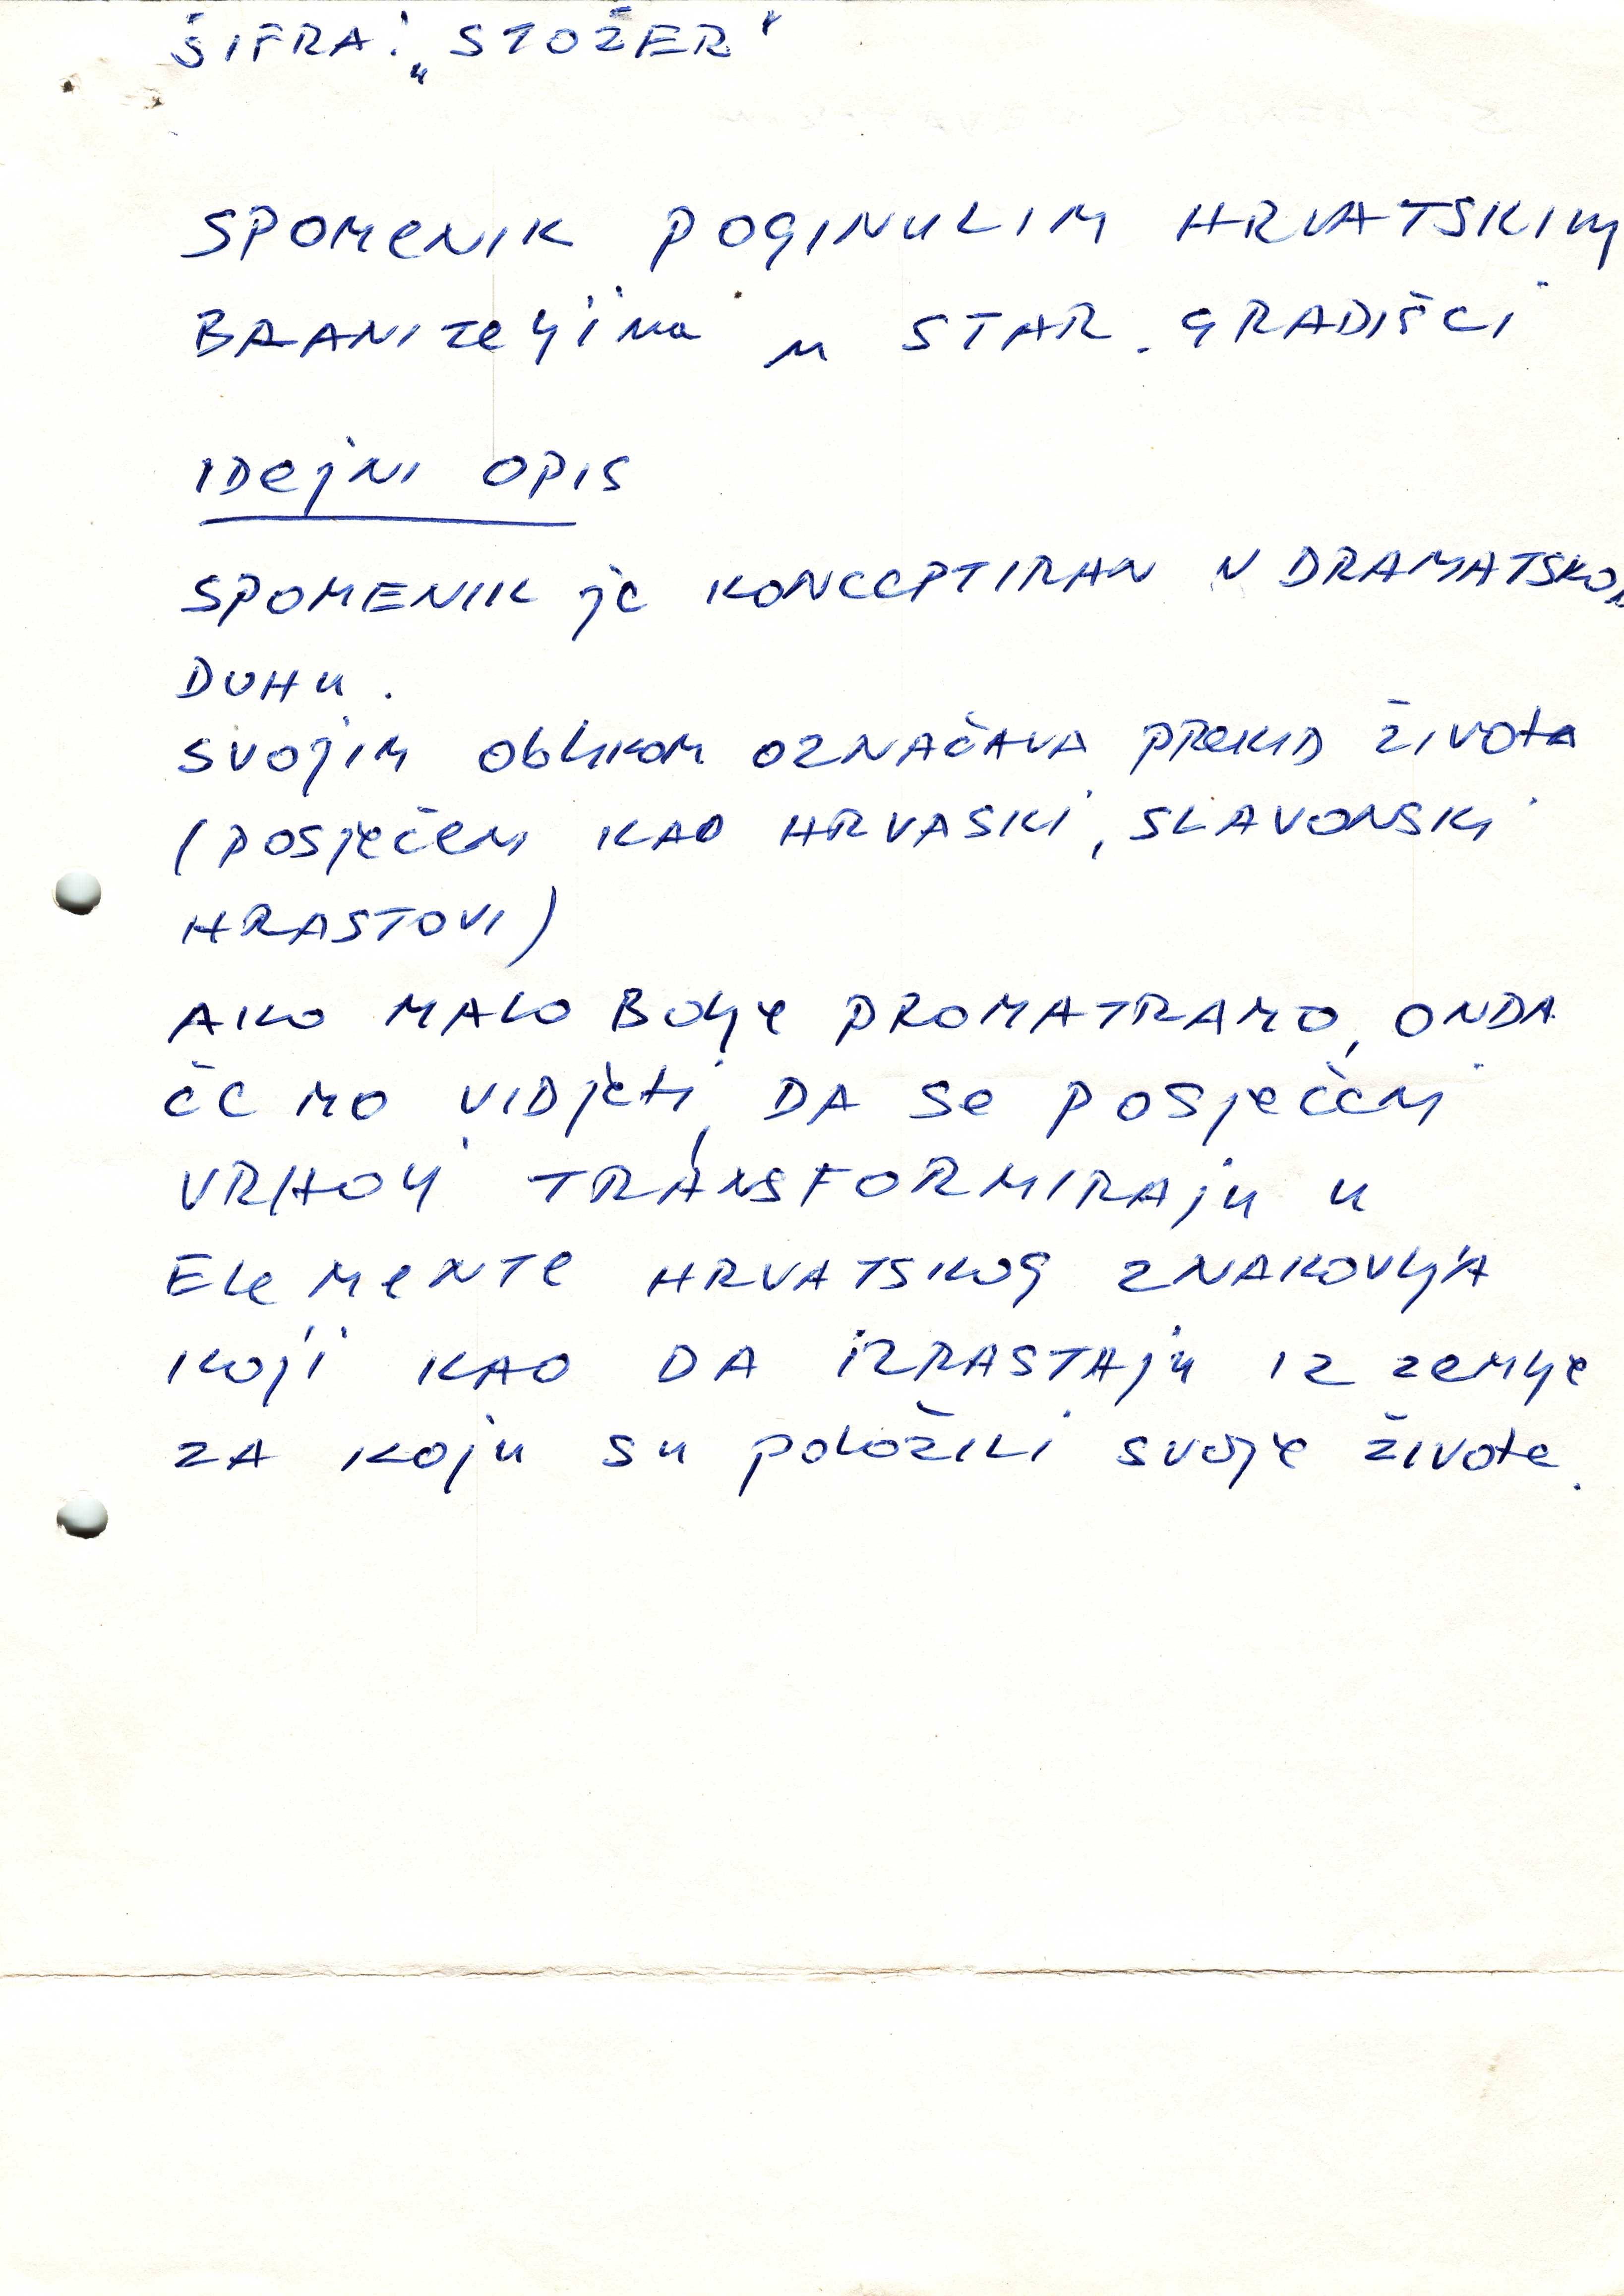 ŠIFRA: „STOŽER"
SPOMENIK POGINULIM HRVATSKIM
BRANITELJIMA U STAR. GRADIŠCI
IDEJNI OPIS
SPOMENIK JE KONCEPTIRAN U DRAMATSKOM
DUHU.
SVOJIM OBLIKOM OZNAČAVA PREKID ŽIVOTA
(POSJEČENI KAO HRVASKI, SLAVONSKI
HRASTOVI)
AKO MALO BOLJE PROMATRAMO, ONDA
ČEMO VIDJETI, DA SE POSJEČENI
VRHOVI TRANSFORMIRAJU U
ELEMENTE HRVATSKOG ZNAKOVLJA
KOJI KAO DA IZRASTAJU IZ ZEMLJE
ZA KOJU SU POLOŽILI SVOJE ŽIVOTE.